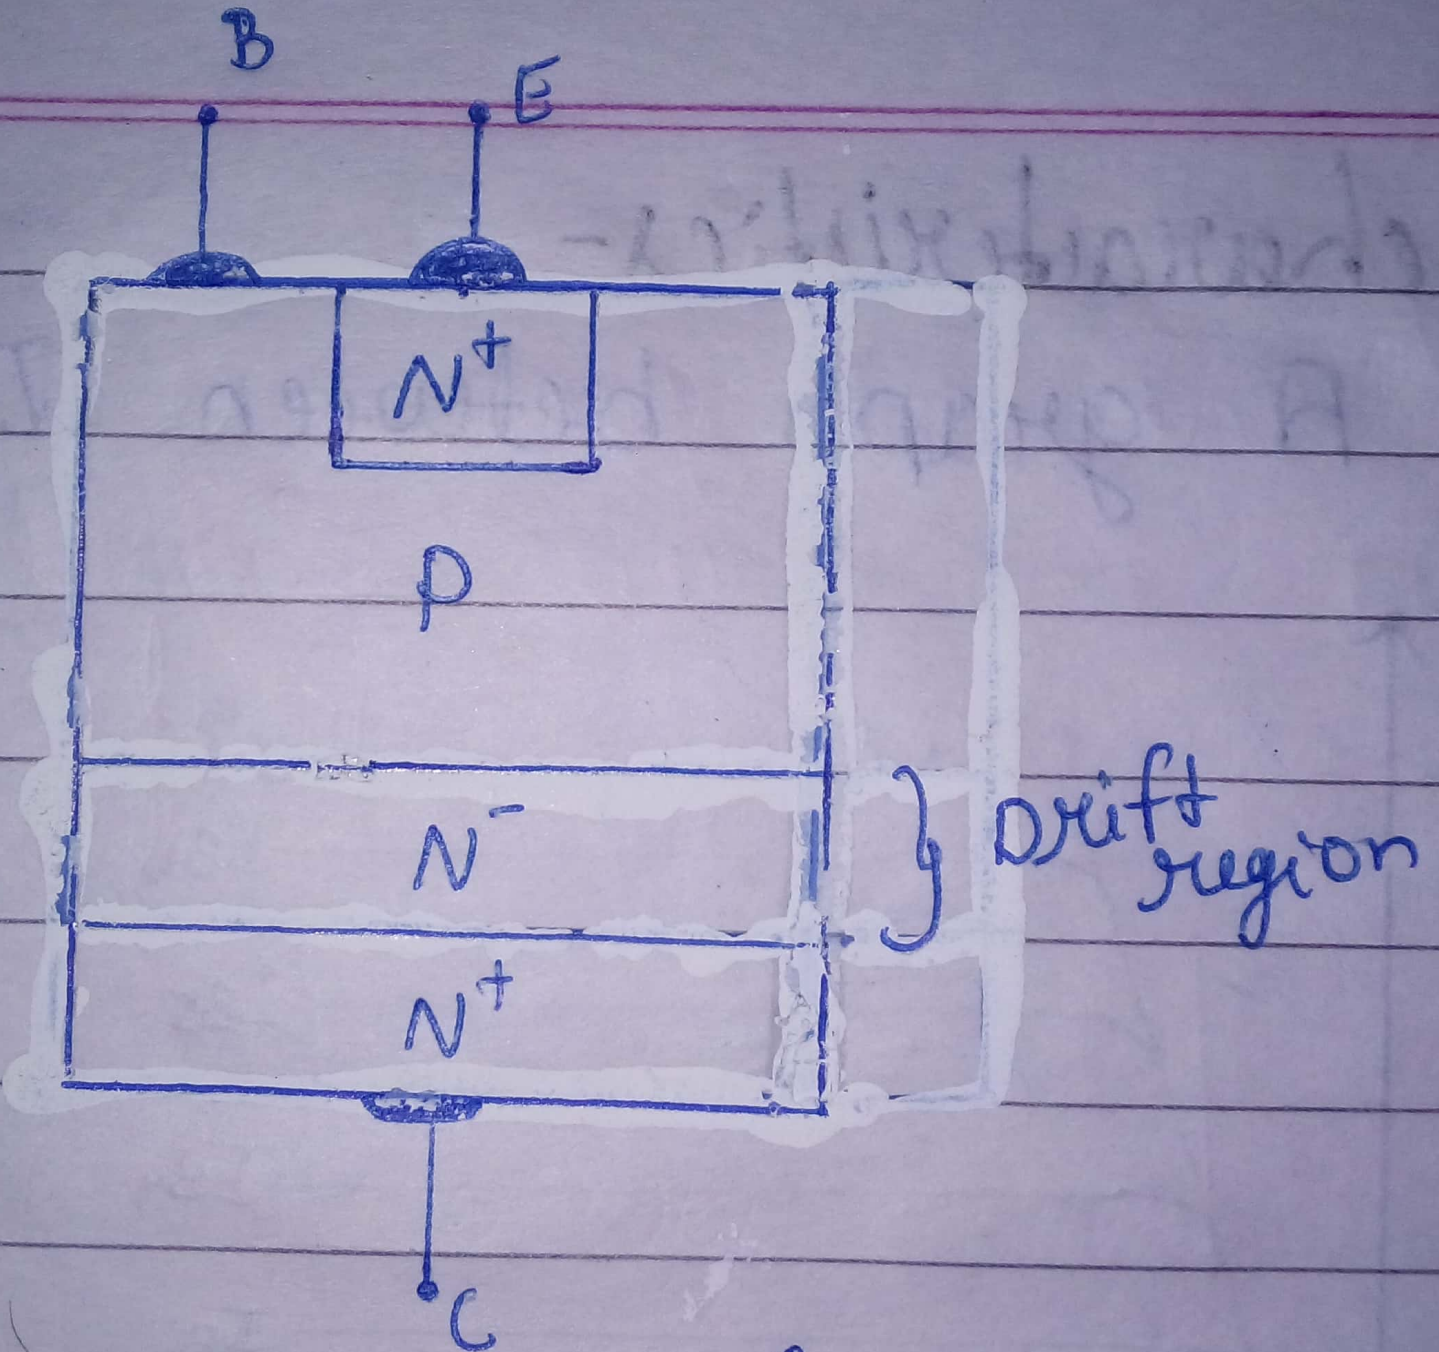 B
E
N⁺
P
N⁻
Drift
region
N⁺
C